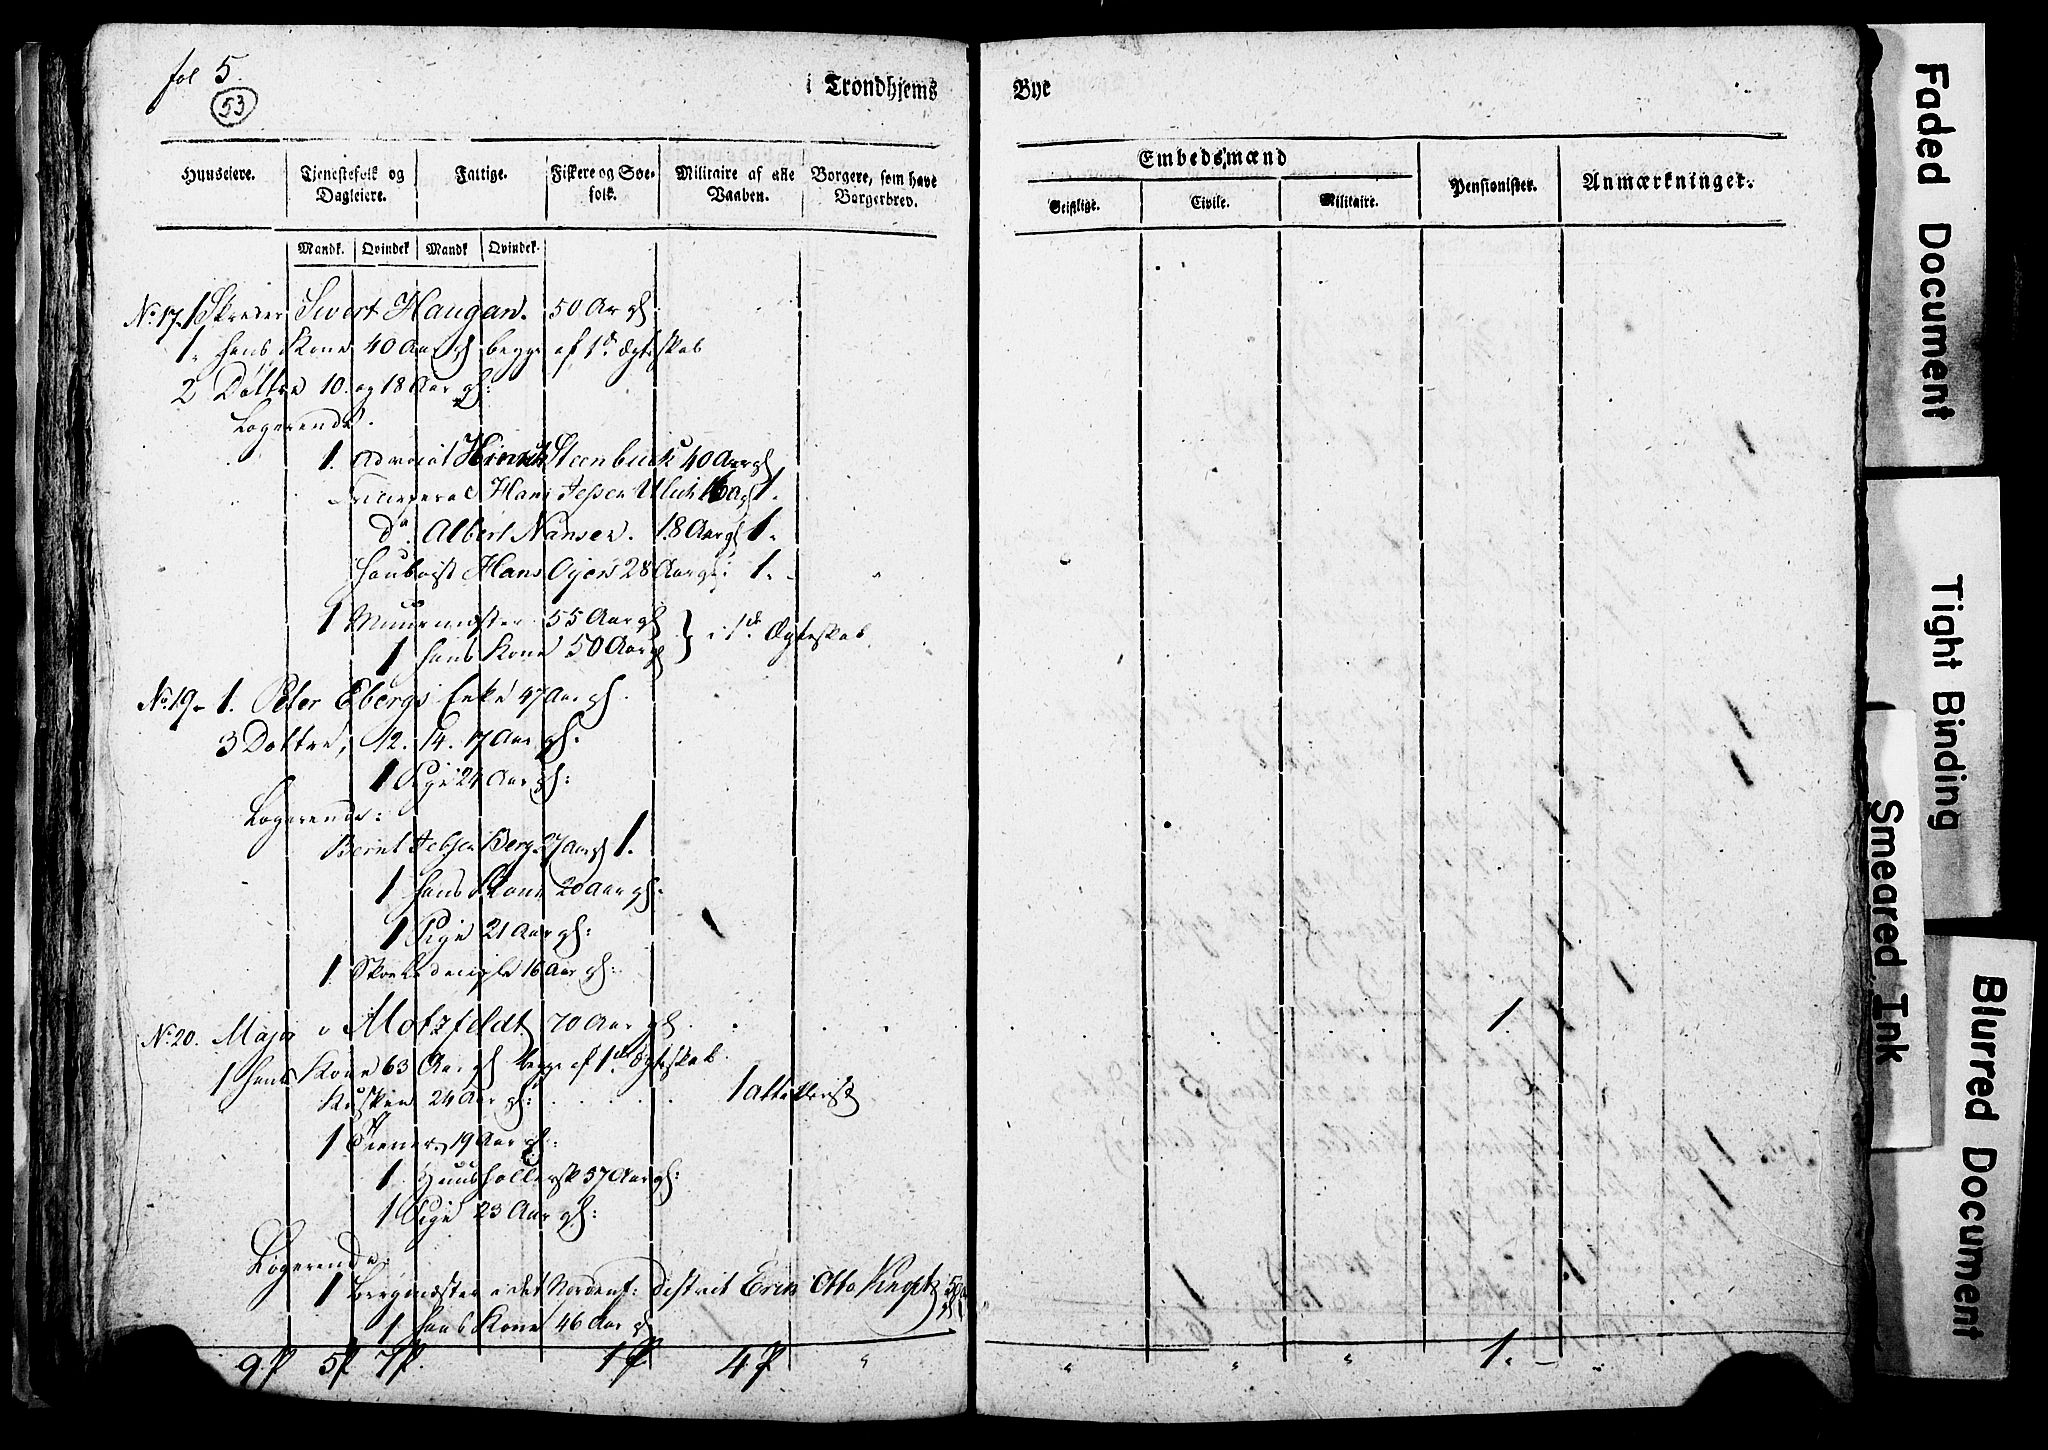 fol 5.
53
i Trondhjems Bye
Huuseiere. Tjenestefolk og Dagleiere. Fattige. Fiskere og Søefolk. Militaire af alle Vaaben. Borgere, som have Borgerbrev. Embedsmænd Pensionister. Anmærkninger.
Geistlige. Civile. Militaire.
Mandk. Qvindek Mandk Qvindek.
No. 17. 1 Skreder Sivert Haugan. 50 Aar gl
1. hans Kone 40 Aar gl begge af 1ste Ægteskab
2 Døttre 10. og 18 Aar gl:
Logerende.
1. Hinrich Steenbuck 40 Aar gl
Hans Jessen Ulich 16 A gl 1.
do. Albert Nansen. 18 Aar gl 1.
Hauboist Hans Oyen 28 Aar gl: 1.
1 Muurmester 55 Aar gl
1 hans Kone 50 Aar gl } i 1ste Ægteskab.
No. 19. 1. Peter Ebergs Enke 47 Aar gl.
3 Dottre, 12. 14. 17 Aar gl.
1 Pige 24 Aar gl:
Logerende:
Bernt Jebsen Berg 27 Aar gl 1.
1 hans Kone 20 Aar gl:
1 Pige 21 Aar gl:
1. 16 Aar gl:
No. 20. Major v Motzfeldt 70 Aar gl. 1.
1 hans Kone 63 Aar gl begge af 1ste Ægteskab.
Kusken 24 Aar gl: 1 Attillerist
1 Tiener 19 Aar gl:
1. Huusholderske 57 Aar gl:
1 Pige 23 Aar gl:
Logerende.
1 Bergmester i det Nordenf: District Erich Otto Knoph 50 1
1 hans Kone 46 Aar gl
9 5 7 1 4 " " " " 1.
Faded Document
Tight Binding
Smeared Ink
Blurred Document